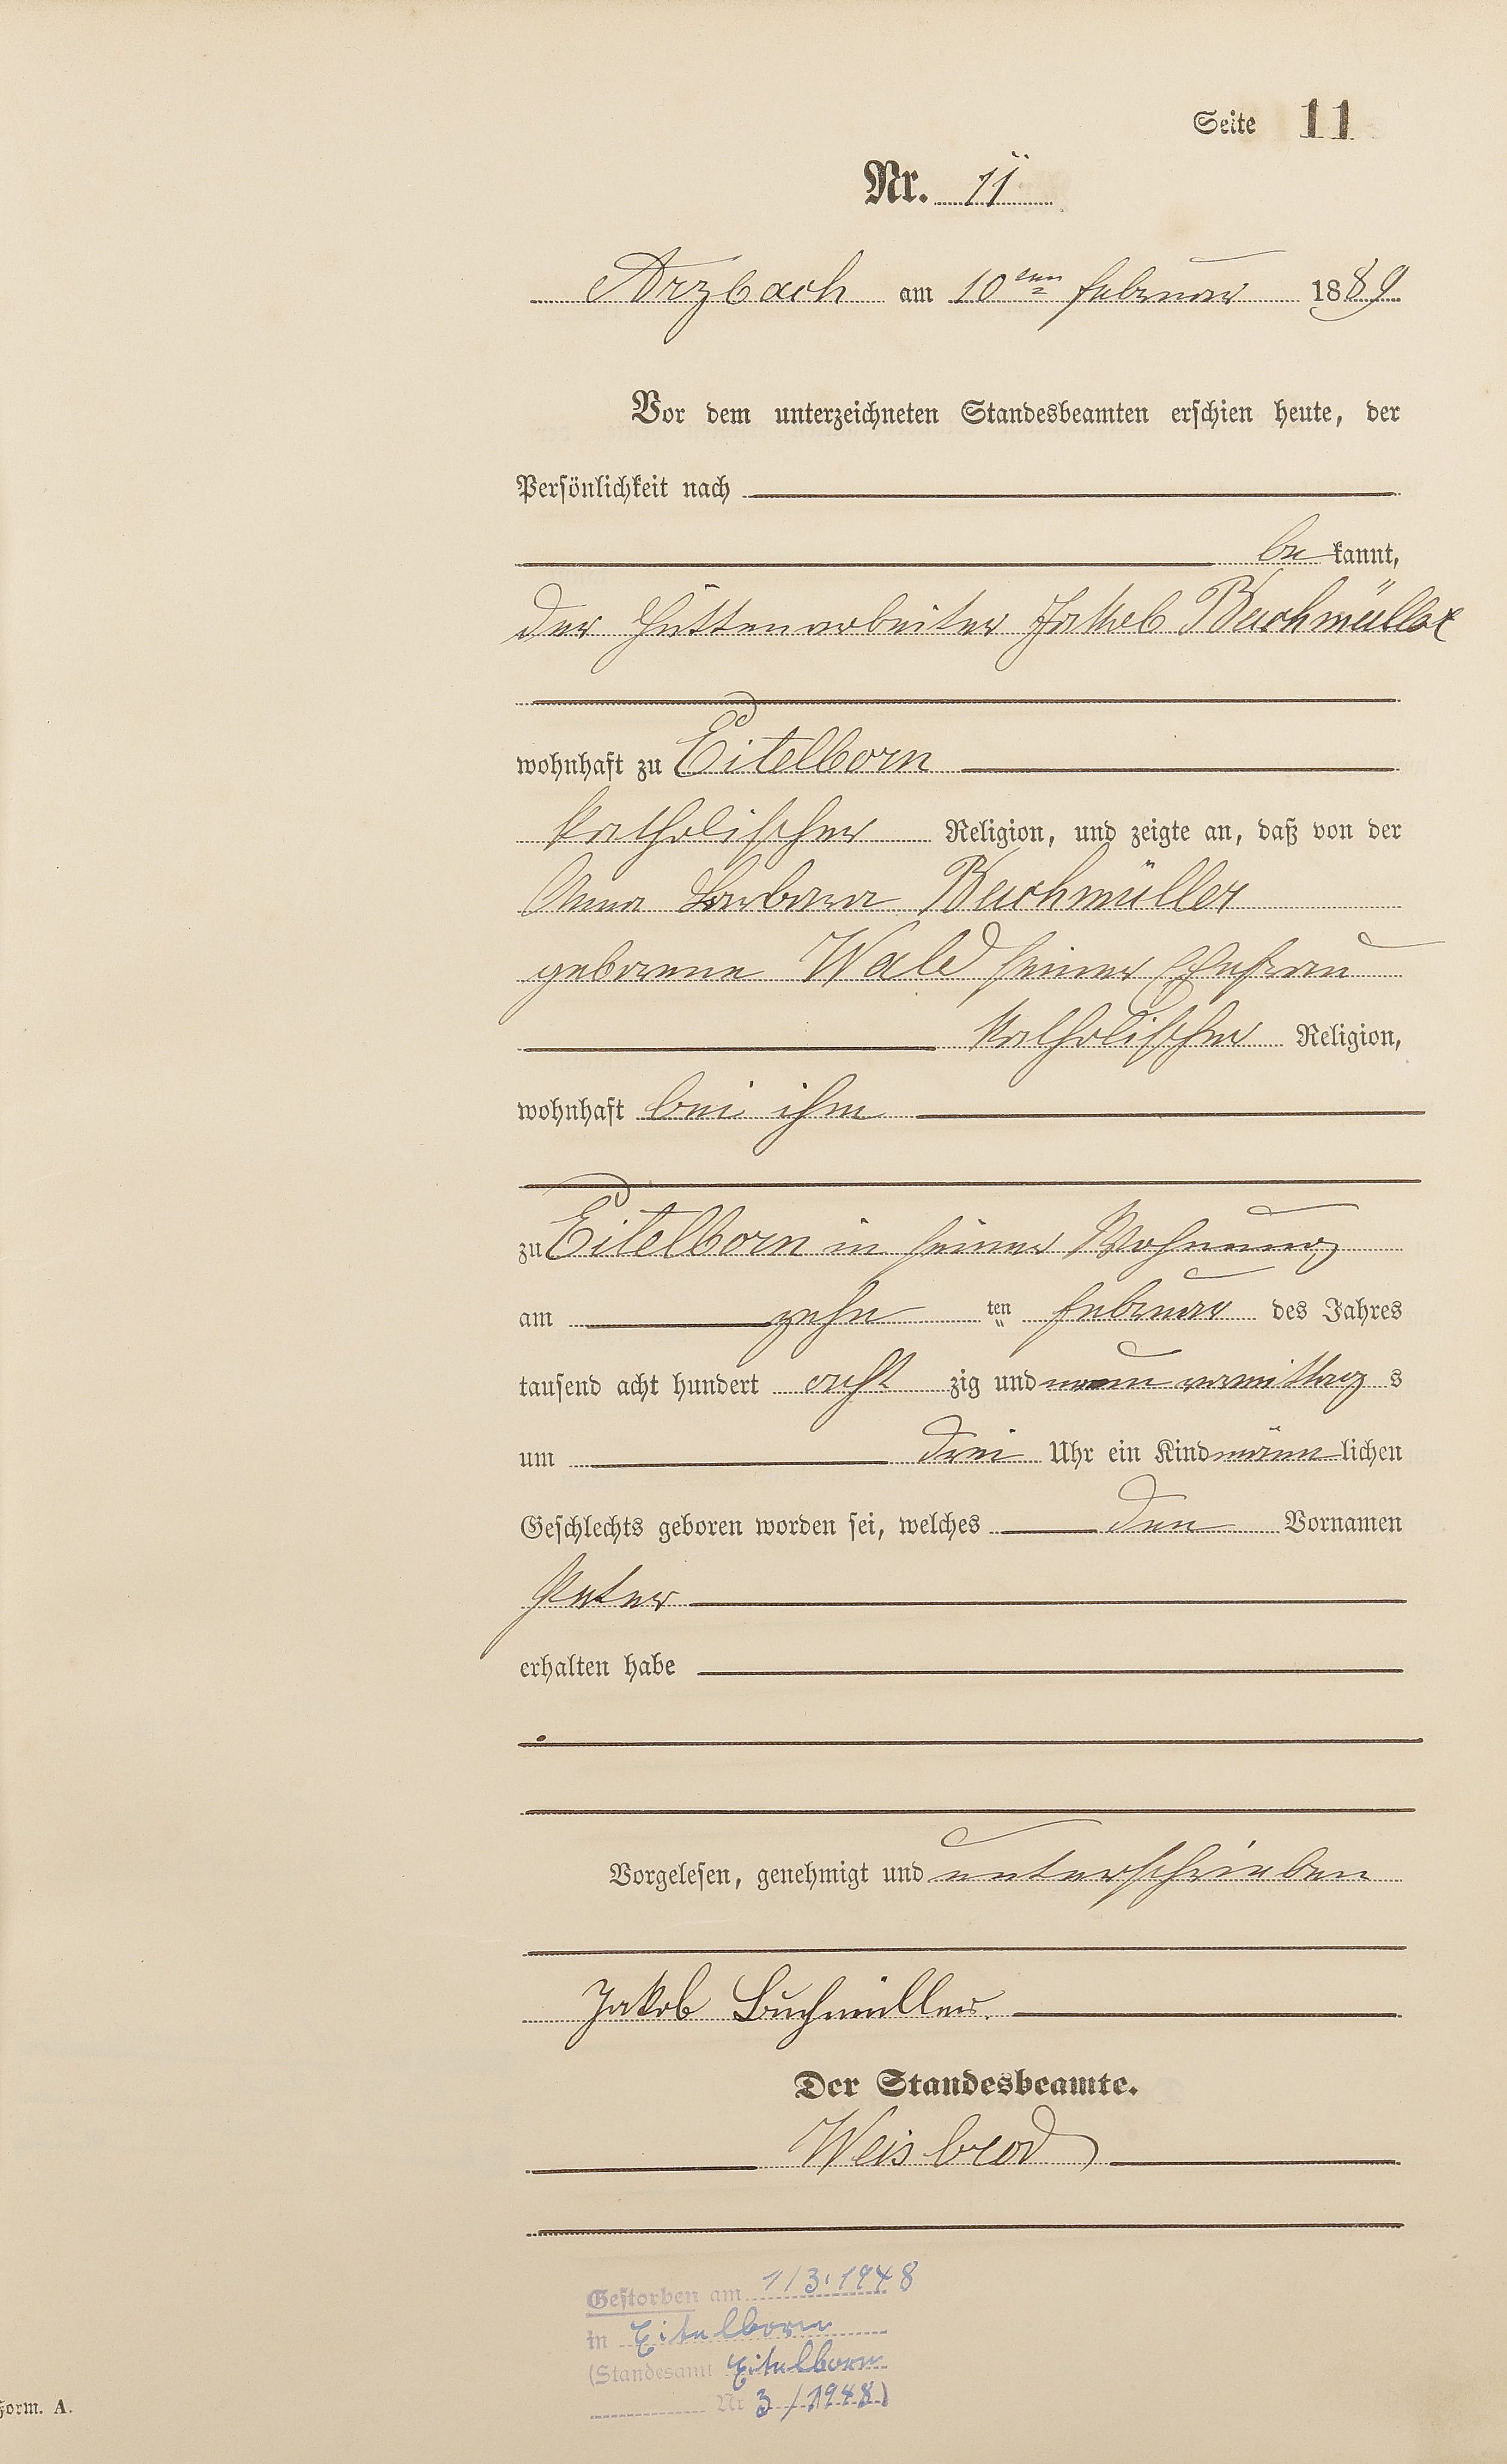 Seite 11
Nr. 11
Arzbach am 10ten Februar 1889
Vor dem unterzeichneten Standesbeamten erschien heute, der
Persönlichkeit nach
be kannt,
der Hüttenarbeiter Jakob Buchmüller
wohnhaft zu Eitelborn
katholischer Religion, und zeigte an, daß von der
Anna Barbara Buchmüller
geborene Wald seiner Ehefrau
katholischer Religion,
wohnhaft bei ihm
zu Eitelborn in seiner Wohnung
am zehn ten Februar des Jahres
tausend acht hundert acht zig und neun vormittag s
um drei Uhr ein Kind männ lichen
Geschlechts geboren worden sei, welches den Vornamen
Peter
erhalten habe
Vorgelesen, genehmigt und unterschrieben
Jakob Buchmüller.
Der Standesbeamte.
Weisbrod
Gestorben am 1/3.1948
in Eitelborn
(Standesamt Eitelborn
Nr 3/1948)
Form. A.